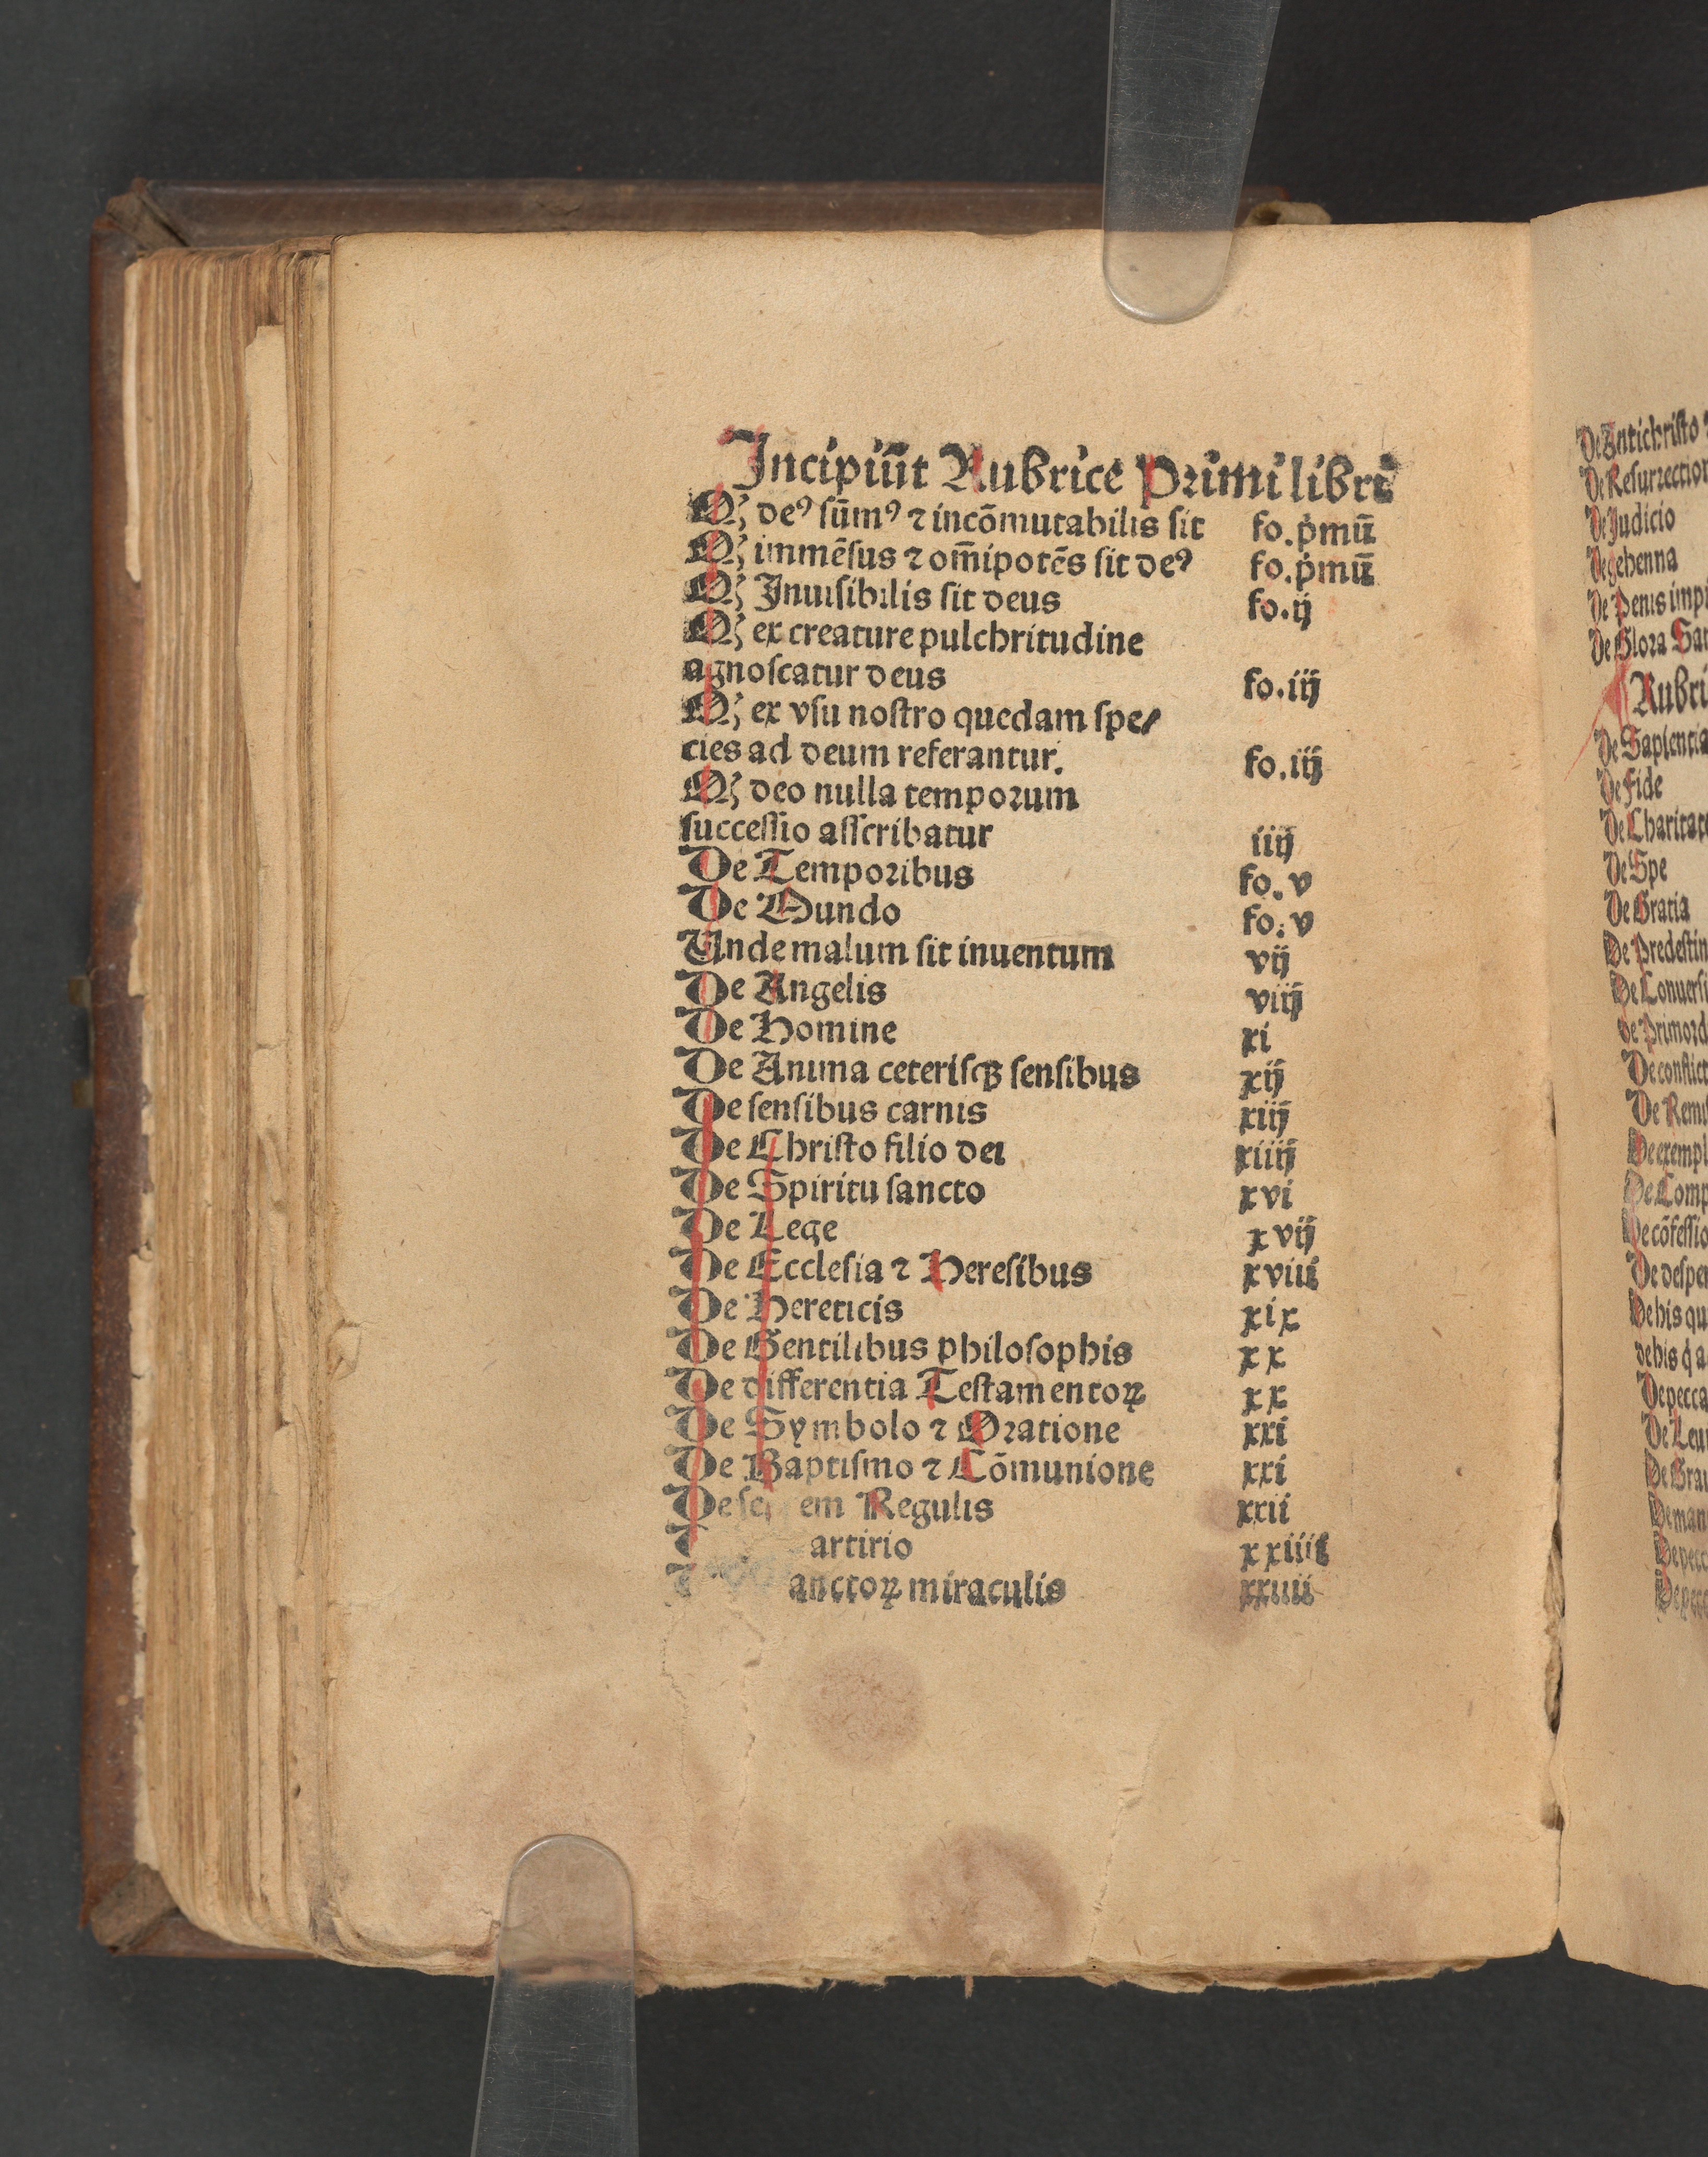 Incipiūt Rubrice Primi libri
Qꝫ deꝰ sūmꝰ ⁊ incōmutabilis sit fo.pmū
Qꝫ immēsus ⁊ om̄ipotēs sit deꝰ fo.pmū
Qꝫ Inuisibilis sit deus fo.ij
Qꝫ ex creature pulchritudine
agnoscatur deus fo.iij
Qꝫ ex vsu nostro quedam spe/
cies ad deum referantur. fo.iij
Qꝫ deo nulla temporum
successio asscribatur iiij
De Temporibus fo.v
De Mundo fo.v
Unde malum sit inuentum vij
De Angelis viij
De Homine xi
De Anima ceterisqꝫ sensibus xij
De sensibus carnis xiij
De Christo filio dei xiiij
De Spiritu sancto xvi
De Lege xvij
De Ecclesia ⁊ Heresibus xviii
De Hereticis xix
De Gentilibus philosophis xx
De differentia Testamentoꝝ xx
De Symbolo ⁊ Oratione xxi
De Baptismo ⁊ Cōmunione xxi
De se em Regulis xxii
artirio xxiiii
anctoꝝ miraculis xxiiii
De Antichristo
De Resurrection
De Judicio
De gehenna
De Penis imp
De Glora San
Rubri
De Sapientia
De Fide
De Charitate
De Spe
De Gratia
De Predestin
De Conuersi
De Primord
De conflict
De Remis
De exempl
De Comp
De cōfessio
De desper
De his qu
De pecca
De Gra